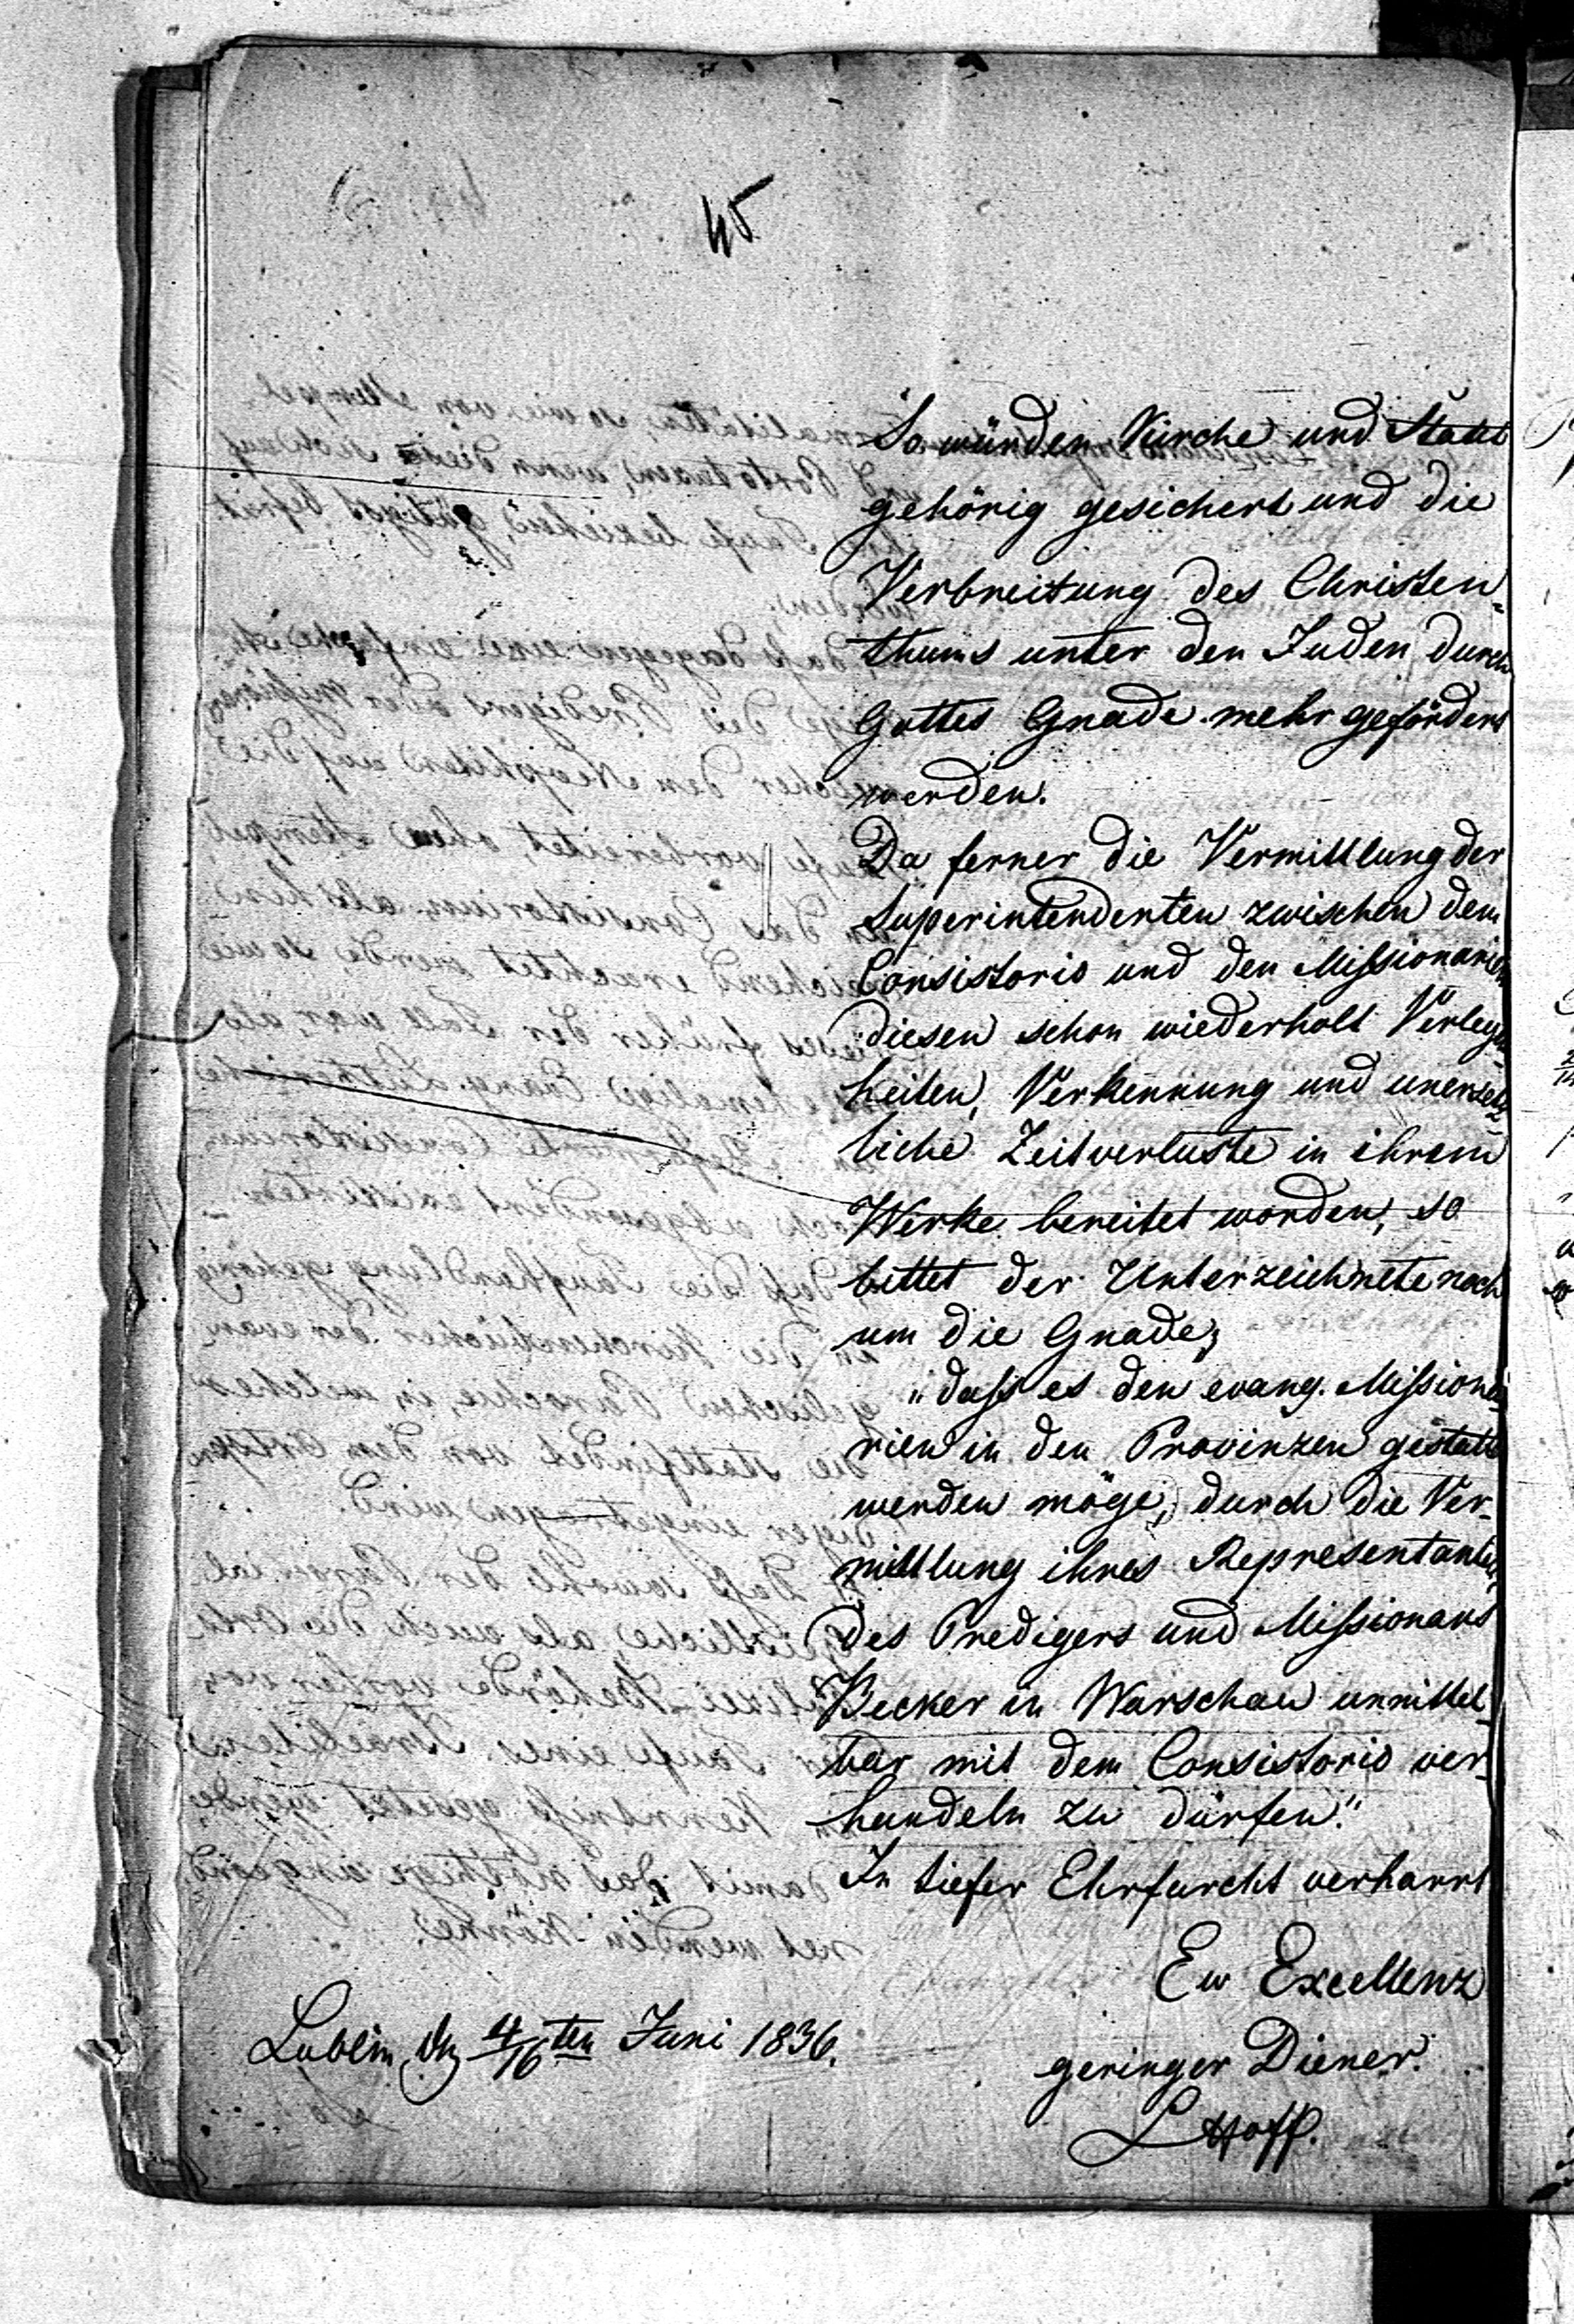 45
So würden Kirche und Staat
gehörig gesichert und die
Verbreitung des Christen-
thums unter den Juden durch
Gottes Gnade mehr gefördert
werden.
Da ferner die Vermittlung der
Superintendenten zwischen dem
Consistorio und den Missionarien
diesen schon wiederholt Verlegen-
heiten, Verkennung und unersetz-
liche Zeitverluste in ihrem
Werke bereitet worden, so
bittet der Unterzeichnete noch
um die Gnade,
"daß es den evang. Missiona-
rien in den Provinzen gestatt
werden möge, durch die Ver-
mittlung ihres Representanten,
des Predigers und Missionars
Becker in Warschau unmittel-
bar mit dem Consistorio ver-
handeln zu dürfen."
In tiefer Ehrfurcht verharrt
Ew Excellenz
geringer Diener.
L Hoff.
Lublin, den 4/16ten Juni 1836.